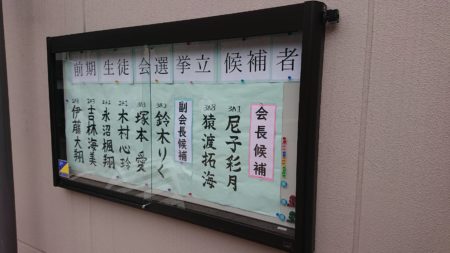 前期生徒会選挙立候補者
会長候補
3A1
尼子彩月
3A8
猿渡拓海
副会長候補
鈴木りく
塚本愛
木村心玲
永沼楓翔
吉林海美
伊藤大翔